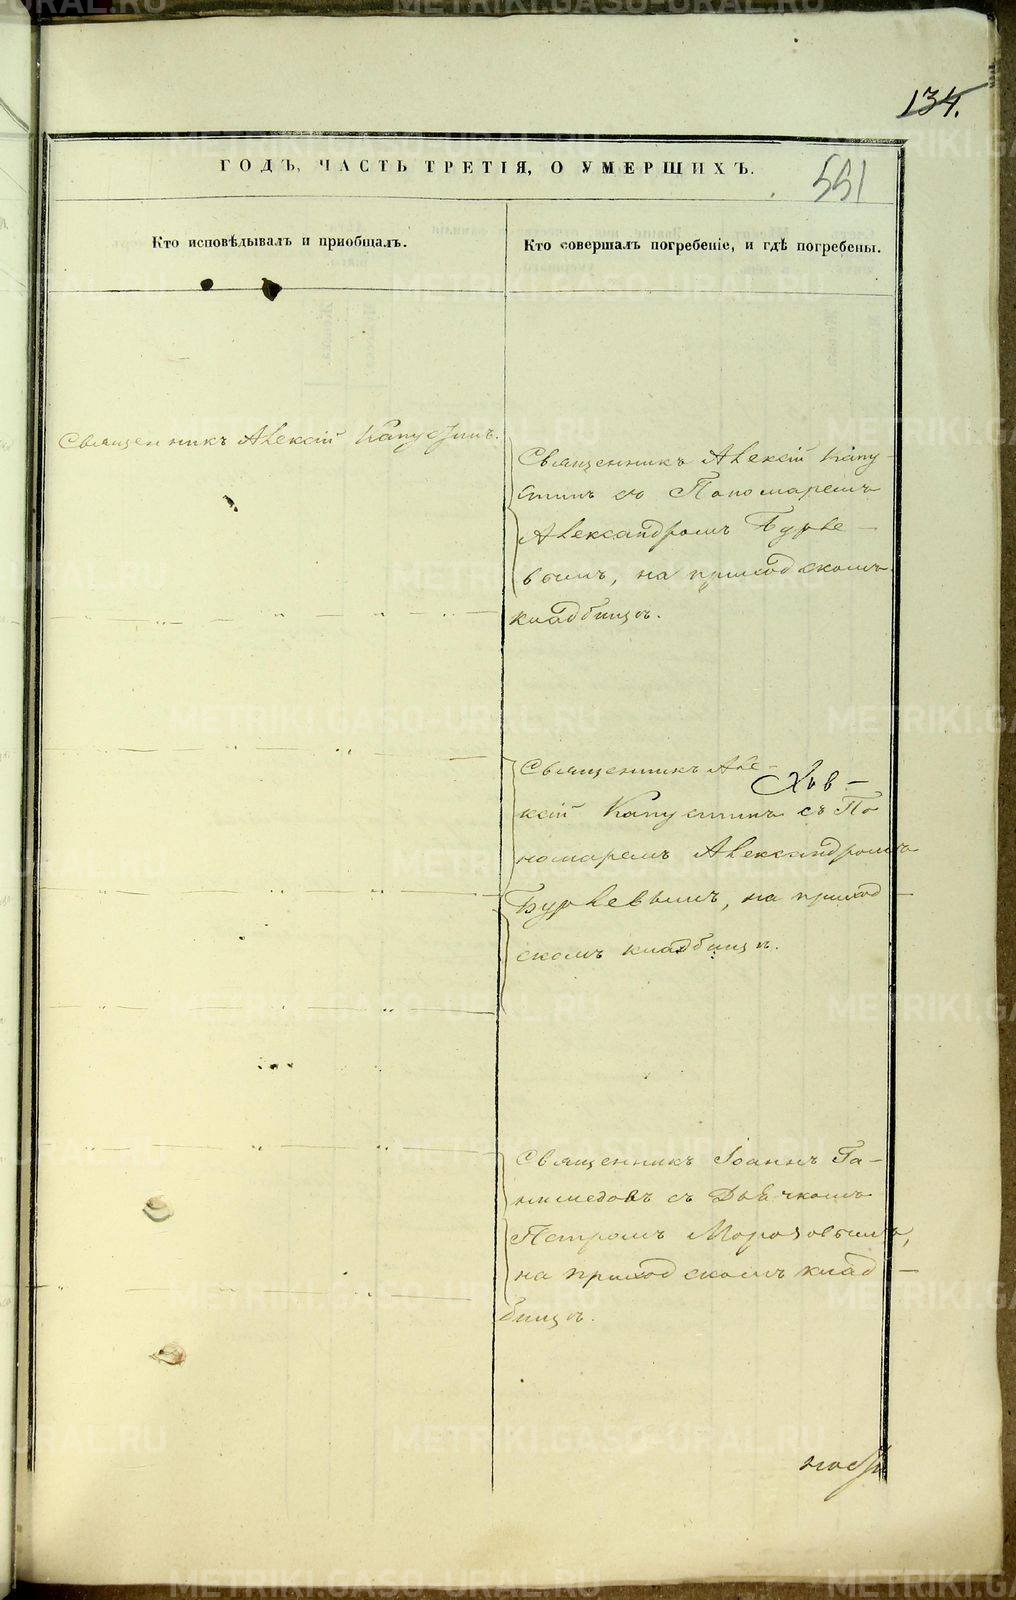 134.
551
ГОДЪ, ЧАСТЬ ТРЕТІЯ, О УМЕРШИХЪ.
Кто исповѣдывалъ и приобщалъ.
Кто совершалъ погребеніе, и гдѣ погребены.
Священникъ Алексій Капустинъ.
Священникъ Алексій Капу-
стинъ съ Пономаремъ
Александромъ Бурле-
вымъ, на приходскомъ
кладбищѣ.
Священникъ Але-
ксій Капустинъ съ По
номаремъ Александромъ
Бурлевымъ, на приход-
скомъ кладбищѣ.
Священникъ Іоаннъ Га-
нимедовъ съ Дьячкомъ
Петромъ Морозовымъ,
на приходскомъ клад-
бищѣ.
METRIKI.GASO-URAL.RU